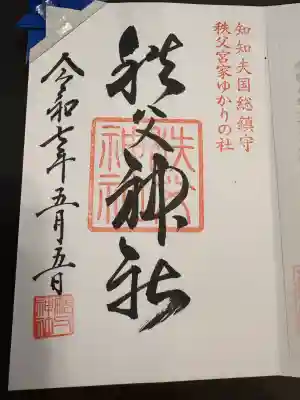 知知夫国総鎮守
秩父宮家ゆかりの社
秩父神社
秩父神社
令和七年五月五日
秩父神社